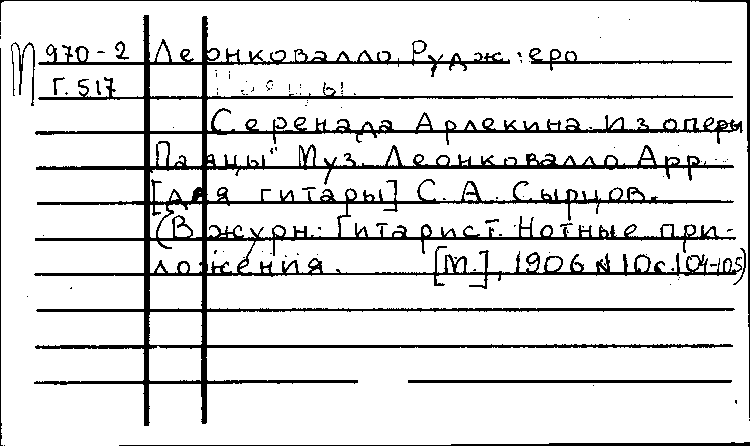 П 970-2 Леонковалло, Руджеро
Г. 517 Паяцы.
Серенада Арлекина. Из оперы
Паяцы" Муз. Леонковалло. Арр.
[для гитары] С. А. Сырцов.
(В журн: Гитарист. Нотные при-
ложения. [М.], 1906 N 10 с. 104-105)